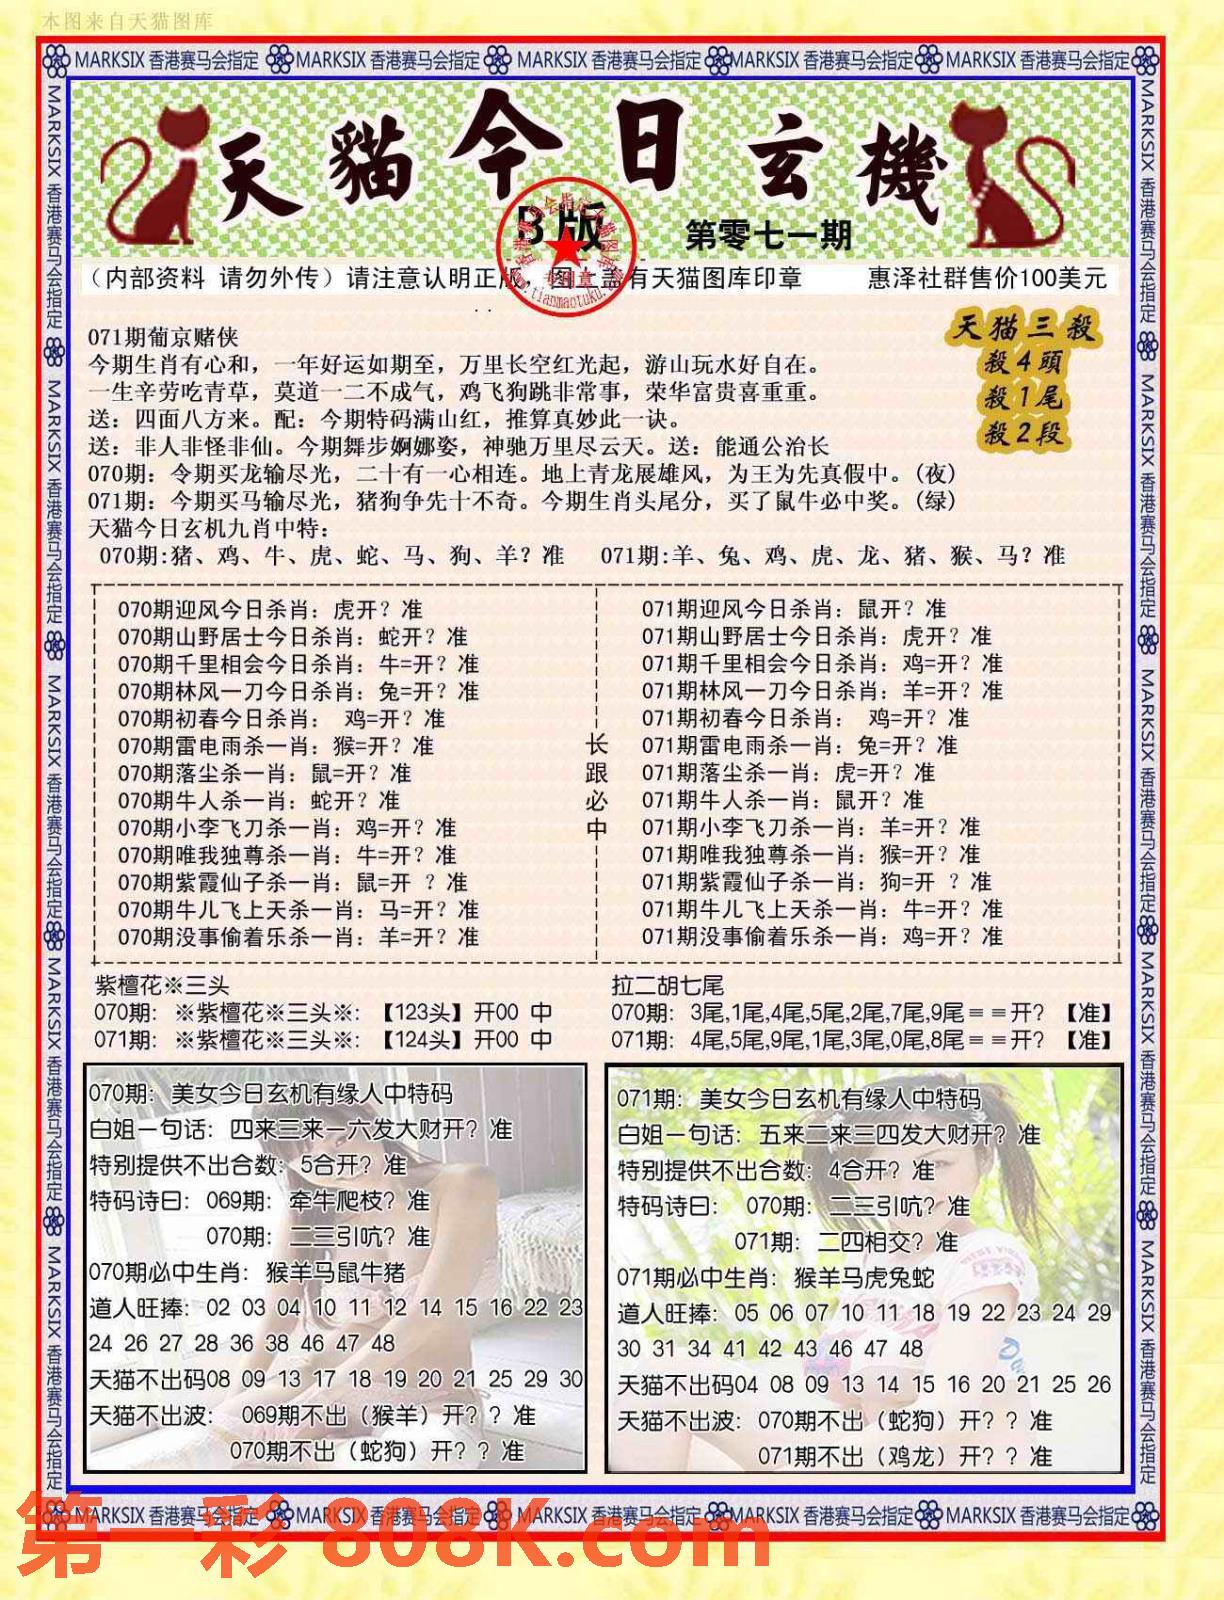 本图来自天猫图库
MARKSIX 香港赛马会指定 MARKSIX 香港赛马会指定 MARKSIX 香港赛马会指定 MARKSIX 香港赛马会指定 MARKSIX 香港赛马会指定
MARKSIX 香港赛马会指定 MARKSIX 香港赛马会指定 MARKSIX 香港赛马会指定 MARKSIX 香港赛马会指定 MARKSIX 香港赛马会指定
天貓今日玄機
B版
第零七一期
专用章
www.tianmaotuku.com
（内部资料 请勿外传）请注意认明正版，图上盖有天猫图库印章 惠泽社群售价100美元
天猫三殺
殺4頭
殺1尾
殺2段
071期葡京赌侠
今期生肖有心和，一年好运如期至，万里长空红光起，游山玩水好自在。
一生辛劳吃青草，莫道一二不成气，鸡飞狗跳非常事，荣华富贵喜重重。
送：四面八方来。配：今期特码满山红，推算真妙此一诀。
送：非人非怪非仙。今期舞步婀娜姿，神驰万里尽云天。送：能通公治长
070期：令期买龙输尽光，二十有一心相连。地上青龙展雄风，为王为先真假中。(夜)
071期：今期买马输尽光，猪狗争先十不奇。今期生肖头尾分，买了鼠牛必中奖。(绿)
天猫今日玄机九肖中特：
070期:猪、鸡、牛、虎、蛇、马、狗、羊？准 071期:羊、兔、鸡、虎、龙、猪、猴、马？准
070期迎风今日杀肖：虎开？准
070期山野居士今日杀肖：蛇开？准
070期千里相会今日杀肖：牛=开？准
070期林风一刀今日杀肖：兔=开？准
070期初春今日杀肖： 鸡=开？准
070期雷电雨杀一肖：猴=开？准
070期落尘杀一肖：鼠=开？准
070期牛人杀一肖：蛇开？准
070期小李飞刀杀一肖：鸡=开？准
070期唯我独尊杀一肖：牛=开？准
070期紫霞仙子杀一肖：鼠=开 ？准
070期牛儿飞上天杀一肖：马=开？准
070期没事偷着乐杀一肖：羊=开？准
长跟必中
071期迎风今日杀肖：鼠开？准
071期山野居士今日杀肖：虎开？准
071期千里相会今日杀肖：鸡=开？准
071期林风一刀今日杀肖：羊=开？准
071期初春今日杀肖： 鸡=开？准
071期雷电雨杀一肖：兔=开？准
071期落尘杀一肖：虎=开？准
071期牛人杀一肖：鼠开？准
071期小李飞刀杀一肖：羊=开？准
071期唯我独尊杀一肖：猴=开？准
071期紫霞仙子杀一肖：狗=开 ？准
071期牛儿飞上天杀一肖：牛=开？准
071期没事偷着乐杀一肖：鸡=开？准
紫檀花※三头
070期：※紫檀花※三头※：【123头】开00 中
071期：※紫檀花※三头※：【124头】开00 中
拉二胡七尾
070期：3尾,1尾,4尾,5尾,2尾,7尾,9尾＝＝开？【准】
071期：4尾,5尾,9尾,1尾,3尾,0尾,8尾＝＝开？【准】
070期：美女今日玄机有缘人中特码
白姐一句话：四来三来一六发大财开？准
特别提供不出合数：5合开？准
特码诗曰：069期：牵牛爬枝？准
070期：二三引吭？准
070期必中生肖：猴羊马鼠牛猪
道人旺捧：02 03 04 10 11 12 14 15 16 22 23
24 26 27 28 36 38 46 47 48
天猫不出码08 09 13 17 18 19 20 21 25 29 30
天猫不出波： 069期不出（猴羊）开？？准
070期不出（蛇狗）开？？准
071期：美女今日玄机有缘人中特码
白姐一句话：五来二来三四发大财开？准
特别提供不出合数：4合开？准
特码诗曰： 070期：二三引吭？准
071期：二四相交？准
071期必中生肖：猴羊马虎兔蛇
道人旺捧：05 06 07 10 11 18 19 22 23 24 29
30 31 34 41 42 43 46 47 48
天猫不出码04 08 09 13 14 15 16 20 21 25 26
天猫不出波：070期不出（蛇狗）开？？准
071期不出（鸡龙）开？？准
MARKSIX 香港赛马会指定 MARKSIX 香港赛马会指定 MARKSIX 香港赛马会指定 MARKSIX 香港赛马会指定 MARKSIX 香港赛马会指定
MARKSIX 香港赛马会指定 MARKSIX 香港赛马会指定 MARKSIX 香港赛马会指定 MARKSIX 香港赛马会指定 MARKSIX 香港赛马会指定
第一彩 808K.com